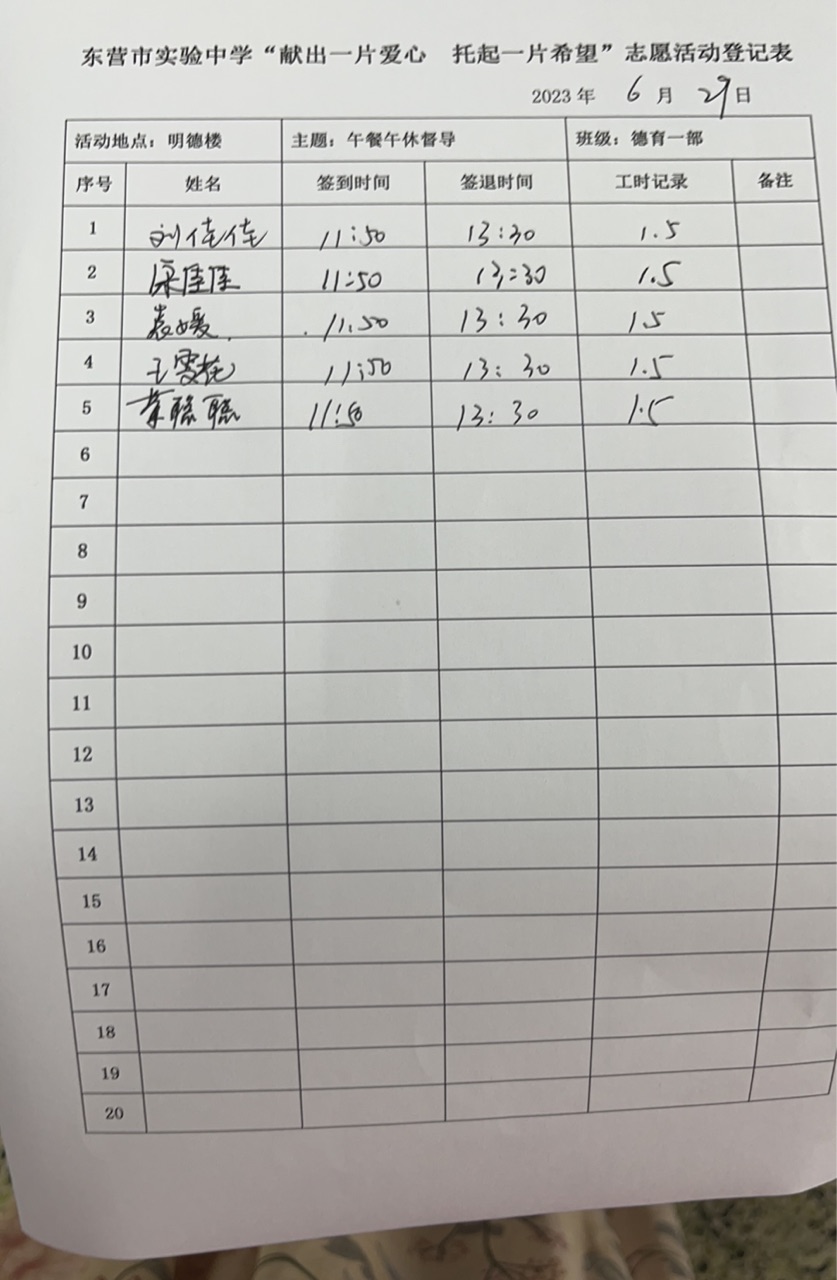 东营市实验中学“献出一片爱心 托起一片希望”志愿活动登记表
2023 年 6 月 29 日
活动地点：明德楼 主题：午餐午休督导 班级：德育一部
序号 姓名 签到时间 签退时间 工时记录 备注
1 刘佳佳 11:50 13:30 1.5
2 11:50 13:30 1.5
3 11.50 13:30 1.5
4 11:50 13:30 1.5
5 11:50 13:30 1.5
6
7
8
9
10
11
12
13
14
15
16
17
18
19
20